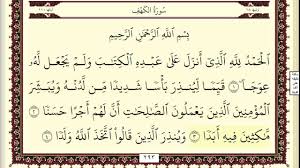 سُورَةُ الكَهْفِ
بِسْمِ اللَّهِ الرَّحْمَٰنِ الرَّحِيمِ
الْحَمْدُ لِلَّهِ الَّذِي أَنزَلَ عَلَىٰ عَبْدِهِ الْكِتَابَ وَلَمْ يَجْعَل لَّهُ
عِوَجًا ۜ ١ قَيِّمًا لِّيُنذِرَ بَأْسًا شَدِيدًا مِّن لَّدُنْهُ وَيُبَشِّرَ
الْمُؤْمِنِينَ الَّذِينَ يَعْمَلُونَ الصَّالِحَاتِ أَنَّ لَهُمْ أَجْرًا حَسَنًا ٢
مَّاكِثِينَ فِيهِ أَبَدًا ٣ وَيُنذِرَ الَّذِينَ قَالُوا اتَّخَذَ اللَّهُ وَلَدًا ٤
٢٩٣